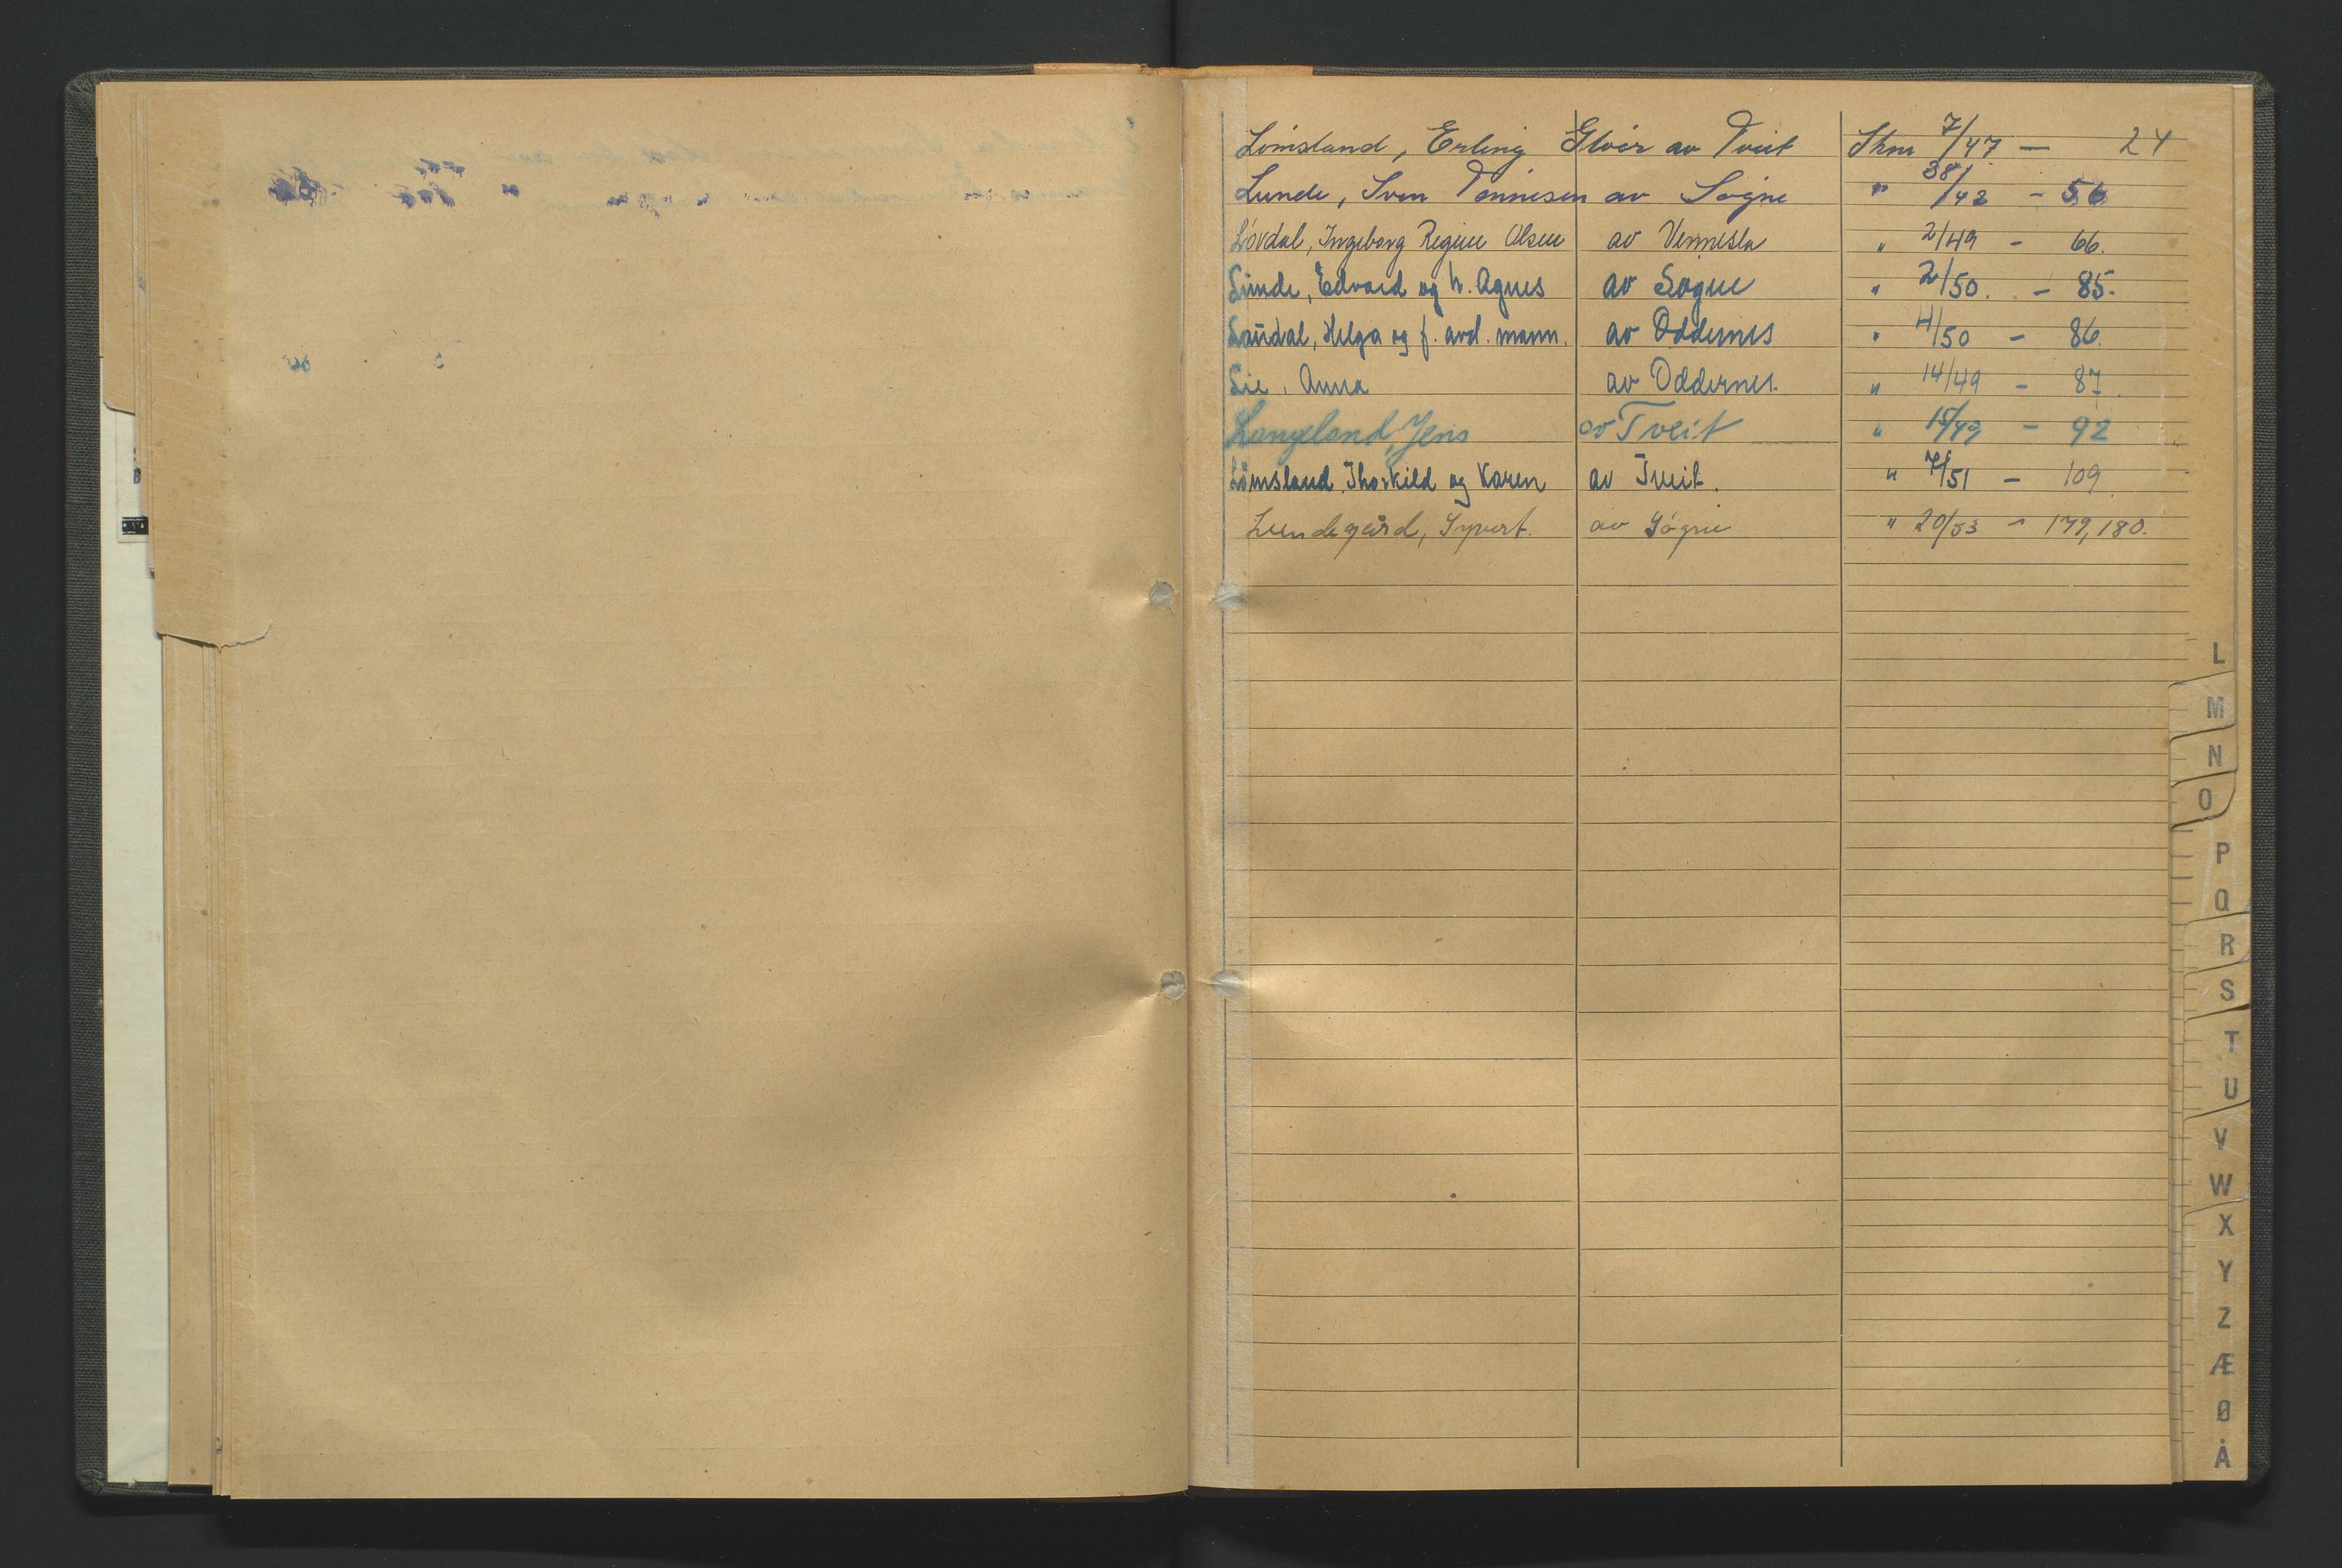 Lömsland, Erling Gloer av Tveit Skm 7/47 — 24
Lunde, Sven Tønnesen av Søgne " 38/42 - 56
Lövdal, Ingeborg Regine Olsen av Vennesla " 2/49 - 66.
Lunde, Edvard og h. Agnes av Søgne " 2/50. - 85.
Laudal, Helga og f. avd. mann. av Oddernes " 4/50 - 86.
Lie, Anna av Oddernes. " 14/49 - 87.
Langeland, Jens av Tveit " 15/49 - 92
Lömsland, Thorkild og Karen av Tveit. " 7/51 - 109.
Lundegård, Syvert. av Søgne " 20/53 - 179, 180.
L
M
N
O
P
Q
R
S
T
U
V
W
X
Y
Z
Æ
Ø
Å